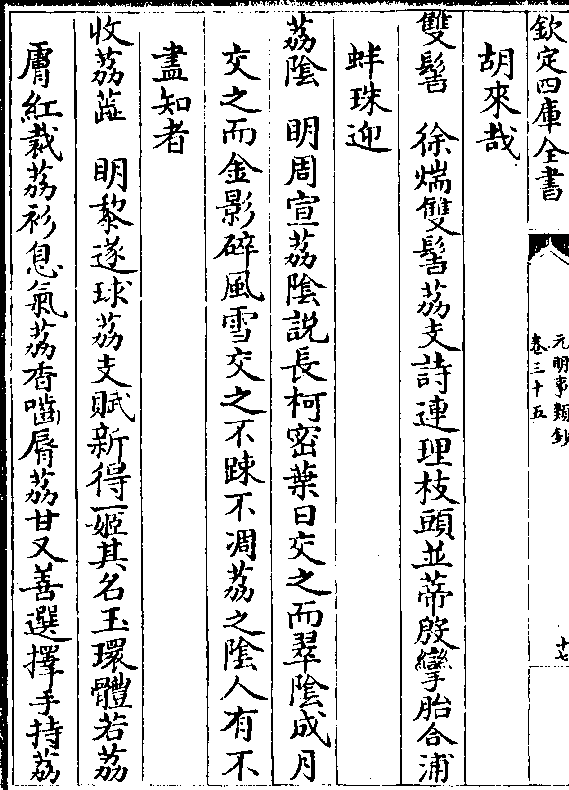 欽定四庫全書
元明事類鈔
卷三十五
十七
胡來哉
雙髻　徐㷆雙髻荔支詩連理枝頭並蒂殷孿胎合浦
蚌珠迎
荔陰　明周宣荔陰說長柯密葉日交之而翠陰成月
交之而金影碎風雪交之不踈不凋荔之陰人有不
盡知者
收荔蕋　明黎遂球荔支賦新得一姬其名玉環體若荔
膚紅裁荔衫息氣荔香嚙脣荔甘又善選擇手持荔